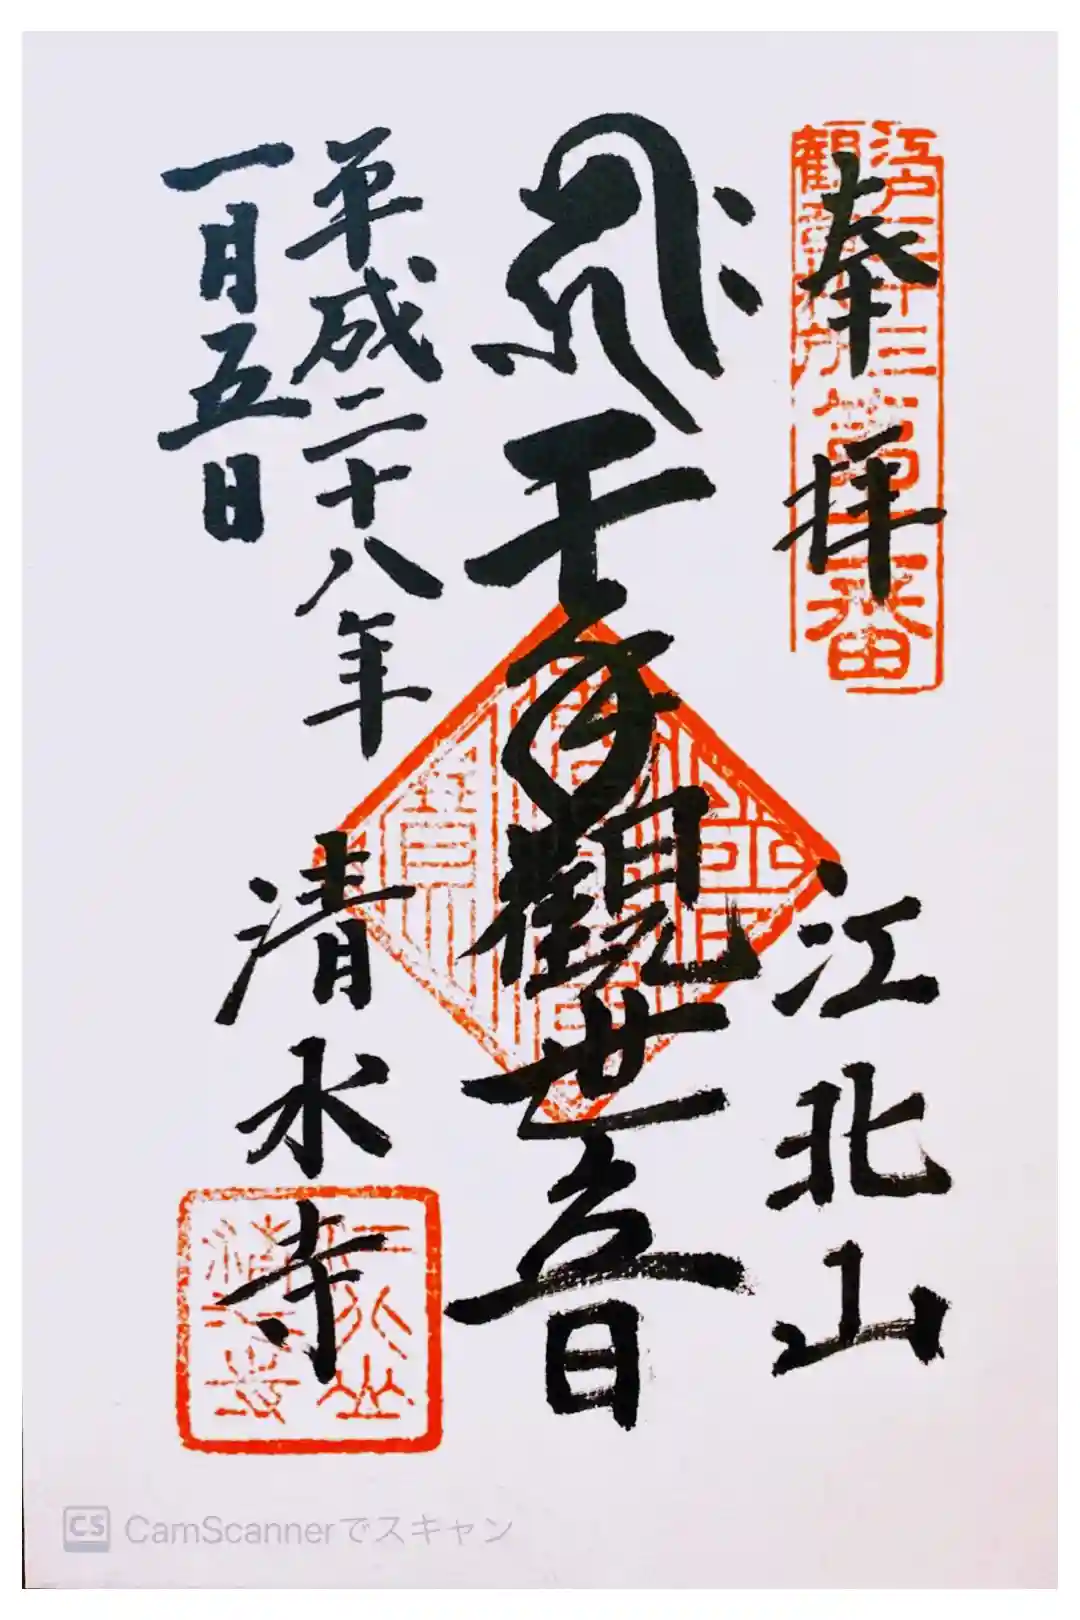 奉拝
江北山
千手観世音
平成二十八年
一月五日
清水寺
江戸三十三
観音札所
第一番
CS CamScannerでスキャン